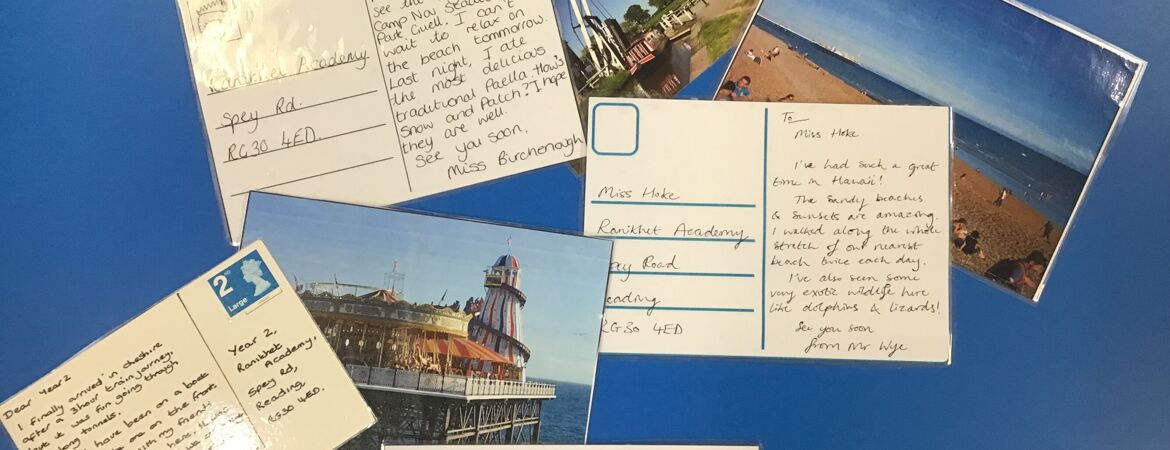 see the
Camp Nou Stadium
Park Guell. I can't
wait to relax on
the beach tommorrow.
Last night, I ate
the most delicious
traditional Paella. How's
Snow and Patch? I hope
they are well.
See you soon,
Miss Birchenough
Ranikhet Academy
Spey Rd.
RG30 4ED.
Miss Hoke
Ranikhet Academy
Spey Road
Reading
RG30 4ED
To
Miss Hoke
I've had such a great
time in Hawaii!
The Sandy beaches
& sunsets are amazing.
I walked along the whole
stretch of our nearest
beach twice each day.
I've also seen some
very exotic wildlife here
like dolphins & lizards!
See you soon
from Mr Wye
2ND
Large
Year 2,
Ranikhet
Academy,
Spey Rd,
Reading
RG30 4ED.
Dear Year 2
I finally arrived in cheshire
after a 3 hour train journey,
but it was fun going through
long tunnels.
have been on a boat
me on the front
with my friends
here. It